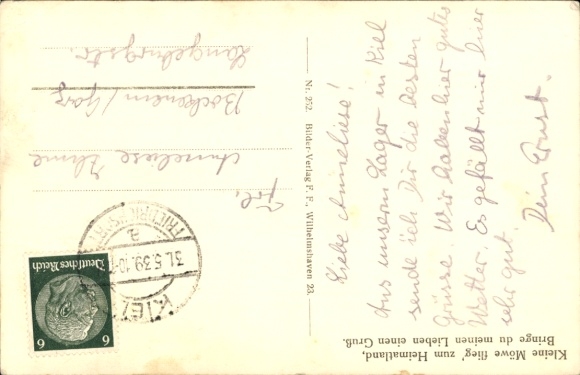 Kleine Möwe flieg' zum Heimatland,
Bringe du meinen Lieben einen Gruß.
Liebe Anneliese!
Aus unserm Lager in Kiel
sende ich Dir die besten
Grüsse. Wir haben hier gutes
Wetter. Es gefällt mir hier
sehr gut.
Dein Ernst.
Nr. 252. Bilder-Verlag F. F., Wilhelmshaven 23.
Frl.
Anneliese
Bockenem/Harz
Deutsches Reich
6 6
KIEL
31.5.39.
FRIEDRICHSORT
a